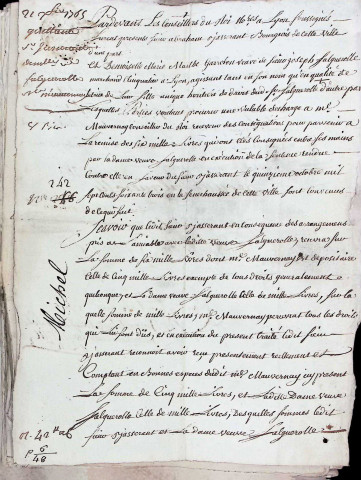 21 7bre 1765
quittance
Sr Sjassereant
demlle de
Salquerolle
Mr mauvernay
Pardevant Les Conseillers du Roi Nores a Lyon soussignés
furent presents Sieur abraham Sjasserant Bourgeois de cette Ville
d'une part
et Benoiste Marie Mathe Gardon veuve de Sieur joseph Salquerolle
marchand Chinguaïleur a Lyon, agissant tant en son nom qu'en qualité de
tutrice de leur fille unique heritiere de droit dudit Sr Salquerolle d'autre part
Lesquelles Parties voulant procurer une Valable decharge a Mr
Mauvernay Conseiller du Roi receveur des Consignations pour parvenir a
La remise des six mille Livres qui ont été Consignées entre ses mains
par la dame veuve Salquerolle en execution de la sentence rendue
Contre elle en faveur dudit Sieur Sjasserant le quinzieme octobre mil
242
Sept cents soixante trois en la senechaussée de cette ville sont convenues
de ce qui suit.
Sçavoir que ledit Sieur Sjasserant en consequence des arrangemens
pris a l'amiable avec ladite veuve Salquerolle retirera sur
La somme de six mille Livres dont Mr Mauvernay est depositaire
Celle de Cinq mille Livres exempte de tous droits generalement
quelconque, et La dame veuve Salquerolle Celle de mille Livres, sur la
quelle somme de mille Livres, Mr Mauvernay percevra tous les droits
qui lui sont dûs, et en execution du present traité Ledit Sieur
Sjasserant reconnoit avoir reçu presentement reellement et
Comptant en Bonnes especes dudit Sieur Mauvernay icy present
La somme de Cinq mille Livres, et Ladite Dame veuve
Salquerolle Celle de mille Livres, Desquelles sommes Ledit
Sieur Sjasserant et La dame veuve Salquerolle
Michel